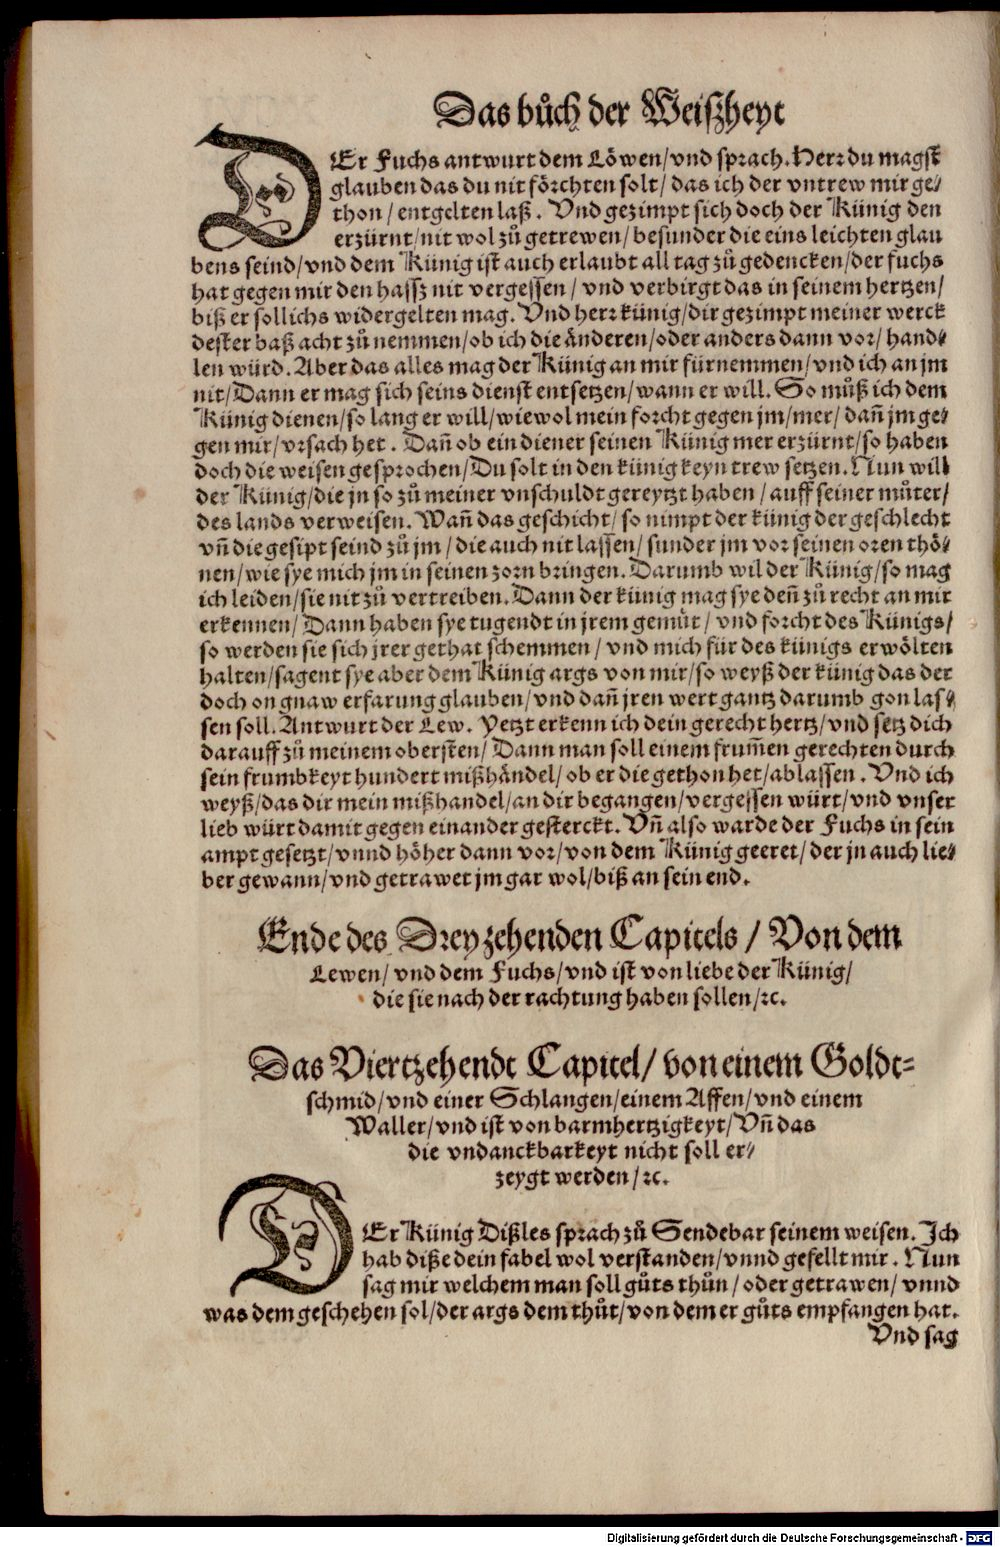 Das bůch der Weißheyt
DEr Fuchs antwurt dem Löwen/ vnd sprach. Herr du magst
glauben das du nit förchten solt/ das ich der vntrew mir ge⸗
thon/ entgelten laß. Vnd gezimpt sich doch der Künig den
erzürnt/ nit wol zů getrewen/ besunder die eins leichten glau
bens seind/ vnd dem Künig ist auch erlaubt all tag zů gedencken/ der fuchs
hat gegen mir den hassz nit vergessen/ vnd verbirgt das in seinem hertzen/
biß er sollichs widergelten mag. Vnd herr künig/ dir gezimpt meiner werck
dester baß acht zů nemmen/ ob ich die änderen/ oder anders dann vor/ hand⸗
len würd. Aber das alles mag der Künig an mir fürnemmen/ vnd ich an jm
nit/ Dann er mag sich seins dienst entsetzen/ wann er will. So můß ich dem
Künig dienen/ so lang er will/ wiewol mein forcht gegen jm/ mer/ dañ jm ge⸗
gen mir/ vrsach het. Dañ ob ein diener seinen Künig mer erzürnt/ so haben
doch die weisen gesprochen/ Du solt in den künig keyn trew setzen. Nun will
der Künig/ die jn so zů meiner vnschuldt gereytzt haben/ auff seiner můter/
des lands verweisen. Wañ das geschicht/ so nimpt der künig der geschlecht
vñ die gesipt seind zů jm/ die auch nit lassen/ sunder jm vor seinen oren thö⸗
nen/ wie sye mich jm in seinen zorn bringen. Darumb wil der Künig/ so mag
ich leiden/ sie nit zů vertreiben. Dann der künig mag sye deñ zů recht an mir
erkennen/ Dann haben sye tugendt in jrem gemüt/ vnd forcht des Künigs/
so werden sie sich jrer gethat schemmen/ vnd mich für des künigs erwölten
halten/ sagent sye aber dem Künig args von mir/ so weyß der künig das der
doch on gnaw erfarung glauben/ vnd dañ jren wert gantz darumb gon las⸗
sen soll. Antwurt der Lew. Yetzt erkenn ich dein gerecht hertz/ vnd setz dich
darauff zů meinem obersten/ Dann man soll einem frum̃en gerechten durch
sein frumbkeyt hundert mißhändel/ ob er die gethon het/ ablassen. Vnd ich
weyß/ das dir mein mißhandel/ an dir begangen/ vergessen würt/ vnd vnser
lieb würt damit gegen einander gesterckt. Vñ also warde der Fuchs in sein
ampt gesetzt/ vnnd höher dann vor/ von dem Künig geeret/ der jn auch lie⸗
ber gewann/ vnd getrawet jm gar wol/ biß an sein end.
Ende des Dreyzehenden Capitels/ Von dem
Lewen/ vnd dem Fuchs/ vnd ist von liebe der Künig/
die sie nach der rachtung haben sollen/ ꝛc.
Das Viertzehendt Capitel/ von einem Goldt⸗
schmid/ vnd einer Schlangen/ einem Affen/ vnd einem
Waller/ vnd ist von barmhertzigkeyt/ Vñ das
die vndanckbarkeyt nicht soll er⸗
zeygt werden/ ꝛc.
DEr Künig Dißles sprach zů Sendebar seinem weisen. Ich
hab diße dein fabel wol verstanden/ vnnd gefellt mir. Nun
sag mir welchem man soll gůts thůn/ oder getrawen/ vnnd
was dem geschehen sol/ der args dem thůt/ von dem er gůts empfangen hat.
Vnd sag
Digitalisierung gefördert durch die Deutsche Forschungsgemeinschaft - DFG